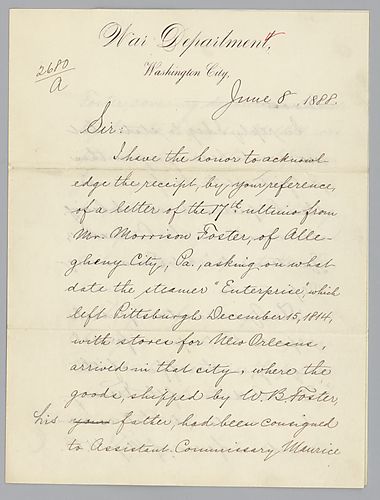 War Department,
Washington City,
2680
A
June 8, 1888.
Sir:
I have the honor to acknowl-
edge the receipt, by your reference,
of a letter of the 17th ultimo from
Mr. Morrison Foster, of Alle-
gheny City, Pa., asking on what
date the steamer "Enterprise", which
left Pittsburgh December 15, 1814,
with stores for New Orleans,
arrived in that city, where the
goods, shipped by W. B. Foster,
his your father, had been consigned
to Assistant Commissary Maurice